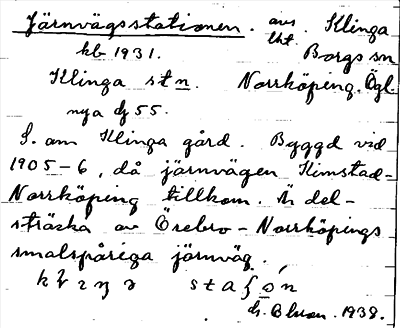 Järnvägsstationen. avs. Klinga
kb 1931. Borgs sn
Klinga stn. Norrköping. Ögl.
nya dj 55.
S. om Klinga gård. Byggd vid
1905-6, då järnvägen Kimstad-
Norrköping tillkom. Är del-
sträcka av Örebro-Norrköpings
smalspåriga järnväg.
1938.